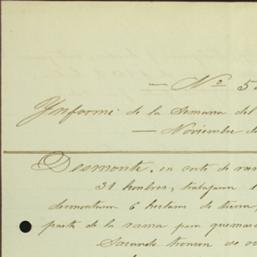 — Nº 5
Ynforme de la Semana del
— Noviembre de
Desmonte, en corte de ram
31 hombres, trabajaron 1
desmontaron 6 hectars de tierra,
parte de la rama para quemar
Sacando troncos de